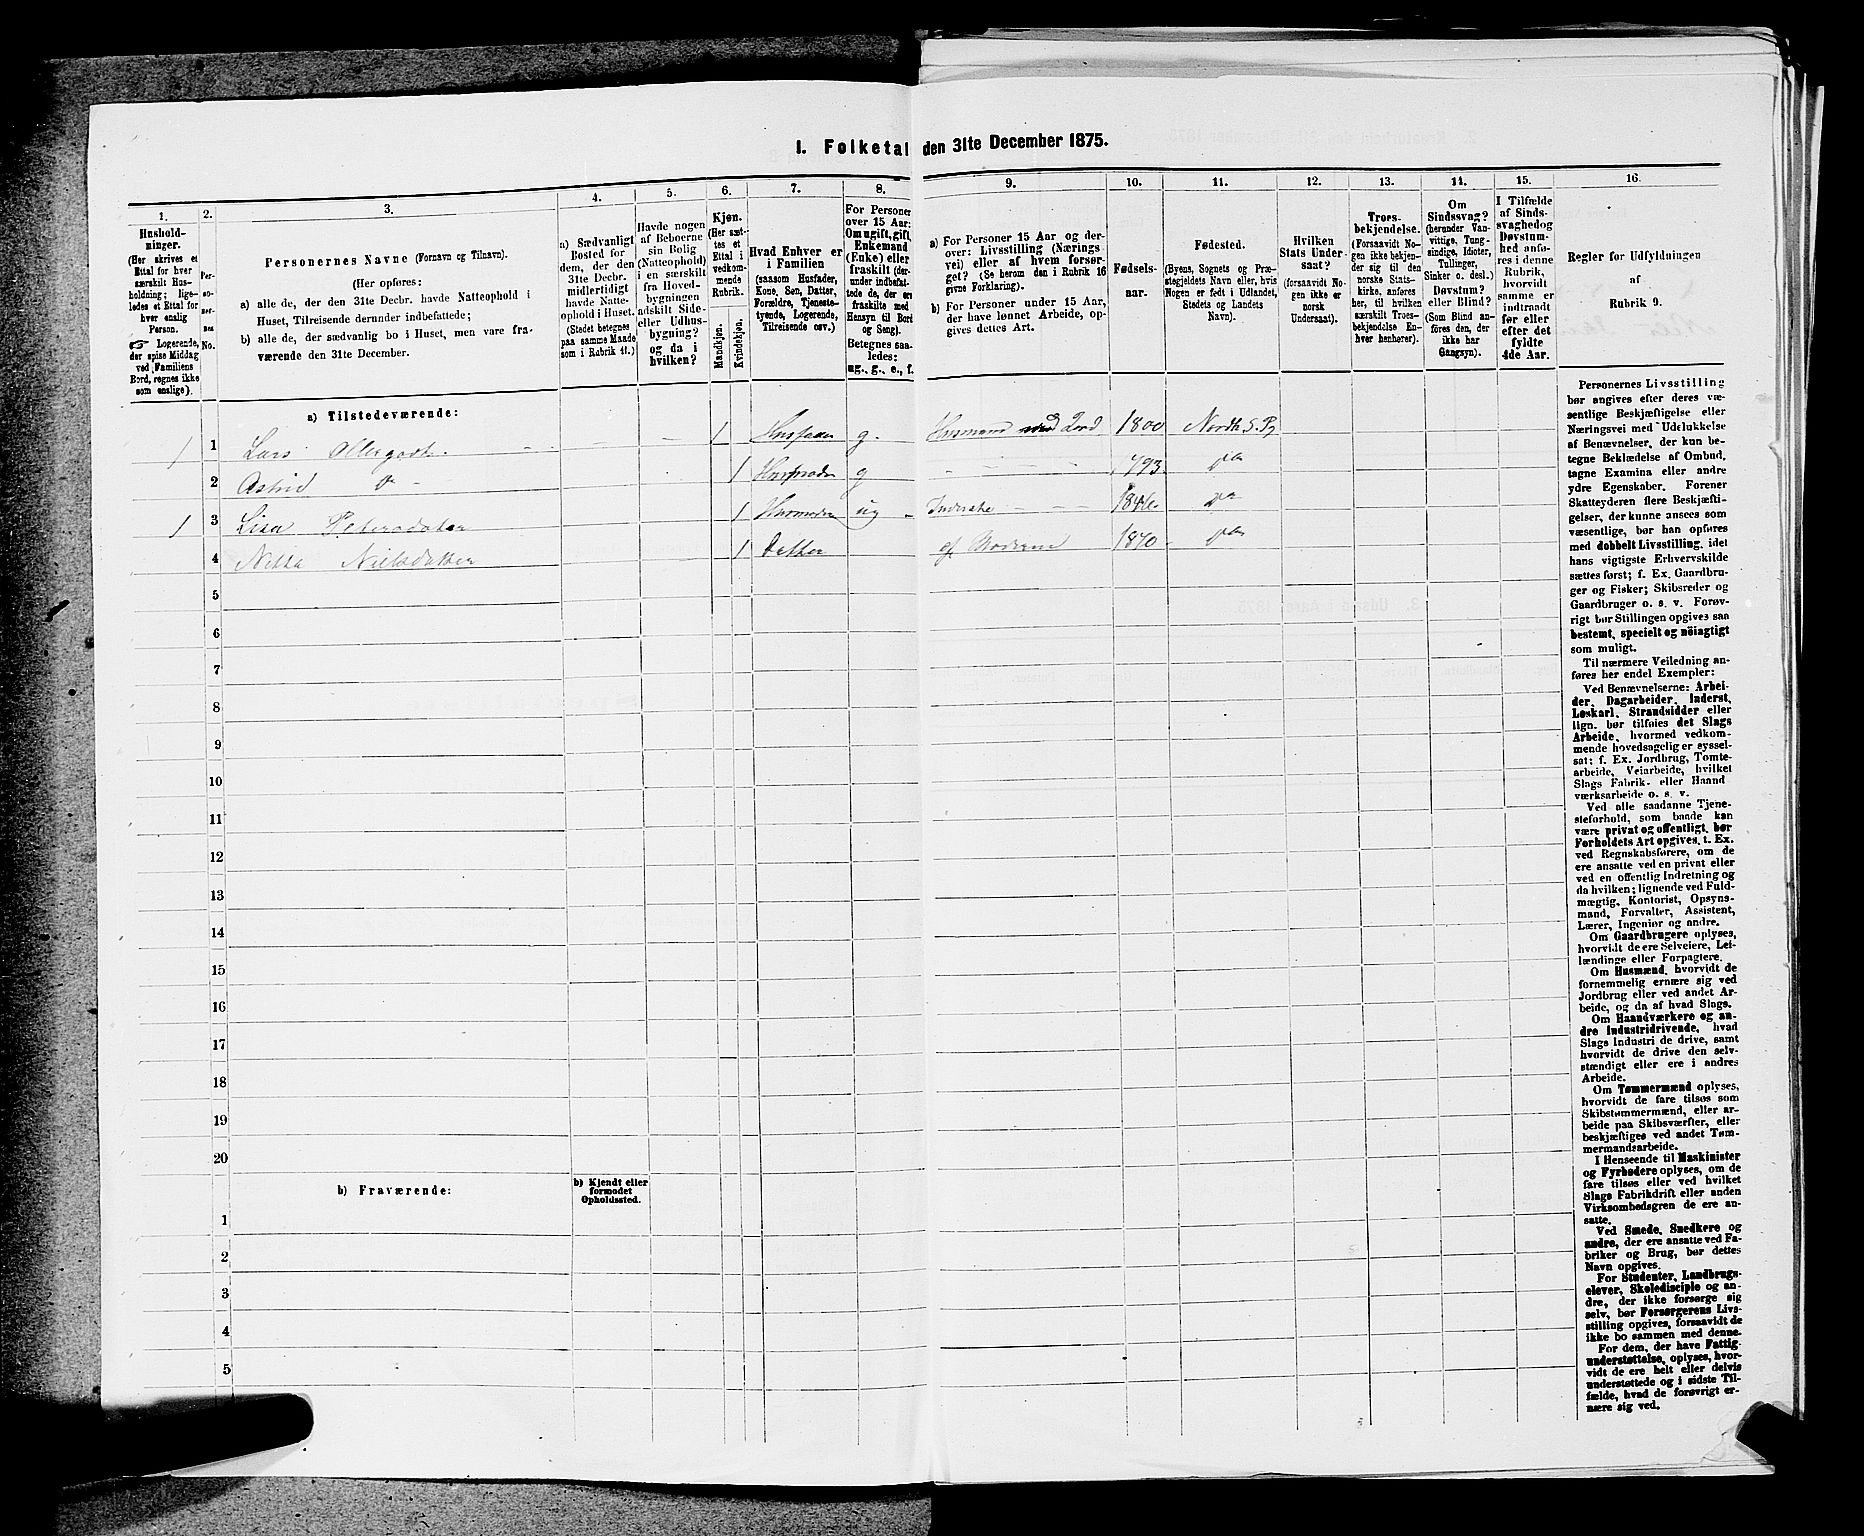 I. Folketal den 31te December 1875.
1. 2. 3. 4. 5. 6. 7. 8. 9. 10. 11. 12. 13. 14. 15. 16.
Hushold-
ninger.
(Her skrives et
Ettal for hver
særskilt Hus-
holdning; lige-
ledes et Ettal for
hver enslig
Person.
☞ Logerende,
der spise Middag
ved Familiens
Bord, regnes ikke
som enslige).
Per-
so-
ner-
nes
No.
Personernes Navne (Fornavn og Tilnavn).
(Her opføres:
a) alle de, der den 31te Decbr. havde Natteophold i
Huset, Tilreisende derunder indbefattede;
b) alle de, der sædvanlig bo i Huset, men vare fra-
værende den 31te December.
a) Sædvanligt
Bosted for
dem, der den
31te Decbr.
midlertidigt
havde Natte-
ophold i Huset.
(Stedet betegnes
paa samme Maade
som i Rubrik 11.)
Havde nogen
af Beboerne
sin Bolig
(Natteophold)
i en særskilt
fra Hoved-
bygningen
adskilt Side-
eller Udhus-
bygning?
og da i
hvilken?
Kjøn.
(Her sæt-
tes et
Ettal i
vedkom-
mende
Rubrik.
Mandkjøn.
Kvindekjøn.
Hvad Enhver er
i Familien
(saasom Husfader,
Kone, Søn, Datter,
Forældre, Tjeneste-
tyende, Logerende,
Tilreisende osv.)
For Personer
over 15 Aar:
Om ugift, gift,
Enkemand
(Enke) eller
fraskilt (der-
under indbefat-
tede de, der er
fraskilte med
Hensyn til Bord
og Seng).
Betegnes saa-
ledes:
ug., g., e., f.
a) For Personer 15 Aar og der-
over: Livsstilling (Nærings
vei) eller af hvem forsør-
get? (Se herom den i Rubrik 16
givne Forklaring).
b) For Personer under 15 Aar,
der have lønnet Arbeide, op-
gives dettes Art.
Fødsels-
aar.
Fødested.
(Byens, Sognets og Præ-
stegjeldets Navn eller, hvis
Nogen er født i Udlandet,
Stedets og Landets
Navn).
Hvilken
Stats Under-
saat?
(forsaavidt No-
gen ikke er
norsk
Undersaat).
Troes-
bekjendelse.
(Forsaavidt No-
gen ikke bekjen-
der sig til den
norske Stats-
kirke, anføres
her, til hvilken
særskilt Troes-
bekjendelse En-
hver henhører).
Om
Sindssvag?
(herunder Van-
vittige, Tung-
sindige, Idioter,
Tullinger,
Sinker o. desl.)
Døvstum?
eller Blind?
(Som Blind an-
føres den, der
ikke har
Gangsyn).
I Tilfælde
af Sinds-
svaghed og
Døvstum-
hed anfø-
res i denne
Rubrik,
hvorvidt
samme er
indtraadt
før eller
efter det
fyldte
4de Aar.
Regler for Udfyldningen
af
Rubrik 9.
a) Tilstedeværende:
1 1 Lars — — 1 Husfader g. Husmand med Jord 1800
2 Astrid do - 1 Husmoder g - - - - 1793. do
1 3 Lisa Petersdatter 1 ug - Inderste - - - do
4 Nielsdatter 1 Datter af Moderen 1870 do
5
6
7
8
9
10
11
12
13
14
15
16
17
18
19
20
b) Fraværende:
b) Kjendt eller
formodet
Opholdssted.
1
2
3
4
5
Personernes Livsstilling
bør angives efter deres væ-
sentlige Beskjæftigelse eller
Næringsvei med Udelukkelse
af Benævnelser, der kun be-
tegne Beklædelse af Ombud,
tagne Examina eller andre
ydre Egenskaber. Forener
Skatteyderen flere Beskjæfti-
gelser, der kunne ansees som
væsentlige, bør han opføres
med dobbelt Livsstilling, idet
hans vigtigste Erhvervskilde
sættes først; f. Ex. Gaardbru-
ger og Fisker; Skibsreder og
Gaardbruger o. s. v. Forøv-
rigt bør Stillingen opgives saa
bestemt, specielt og nøiagtigt
som muligt.
Til nærmere Veiledning an-
føres her endel Exempler:
Ved Benævnelserne: Arbei-
der, Dagarbeider, Inderst,
Løskarl, Strandsidder eller
lign. bør tilføies det Slags
Arbeide, hvormed vedkom-
mende hovedsagelig er syssel-
sat; f. Ex. Jordbrug, Tomte-
arbeide, Veiarbeide, hvilket
Slags Fabrik- eller Haand
værksarbeide o. s. v.
Ved alle saadanne Tjene-
steforhold, som baade kan
være privat og offentligt, bør
Forholdets Art opgives, t. Ex.
ved Regnskabsførere, om de
ere ansatte ved en privat eller
ved en offentlig Indretning og
da hvilken; lignende ved Fuld-
mægtig, Kontorist, Opsyns-
mand, Forvalter, Assistent,
Lærer, Ingeniør og andre.
Om Gaardbrugere oplyses,
hvorvidt de ere Selveiere, Lei-
lændinge eller Forpagtere.
Om Husmænd, hvorvidt de
fornemmelig ernære sig ved
Jordbrug eller ved andet Ar-
beide, og da af hvad Slags.
Om Haandværkere og an-
dre Industridrivende, hvad
Slags Industri de drive, samt
hvorvidt de drive den selv-
stændigt eller ere i andres
Arbeide.
Om Tømmermænd oplyses,
hvorvidt de fare tilsøs som
Skibstømmermænd, eller ar-
beide paa Skibsværfter, eller
beskjæftiges ved andet Tøm-
mermandsarbeide.
I Henseende til Maskinister
og Fyrbødere oplyses, om de
fare tilsøs eller ved hvilket
Slags Fabrikdrift eller anden
Virksombedsgren de ere an-
satte.
Ved Smede, Snedkere og
andre, der ere ansatte ved Fa-
briker og Brug, bør dettes
Navn opgives.
For Studenter, Landbrugs-
elever, Skoledisciple og an-
dre, der ikke forsørge sig
selv, bør Forsørgerens Livs-
stilling opgives, forsaavidt de
ikke bo sammen med denne.
For dem, der have Fattig-
understøttelse, oplyses, hvor-
vidt de ere helt eller delvis
understøttede og i sidste Til-
fælde, hvad de forøvrigt er-
nære sig ved.